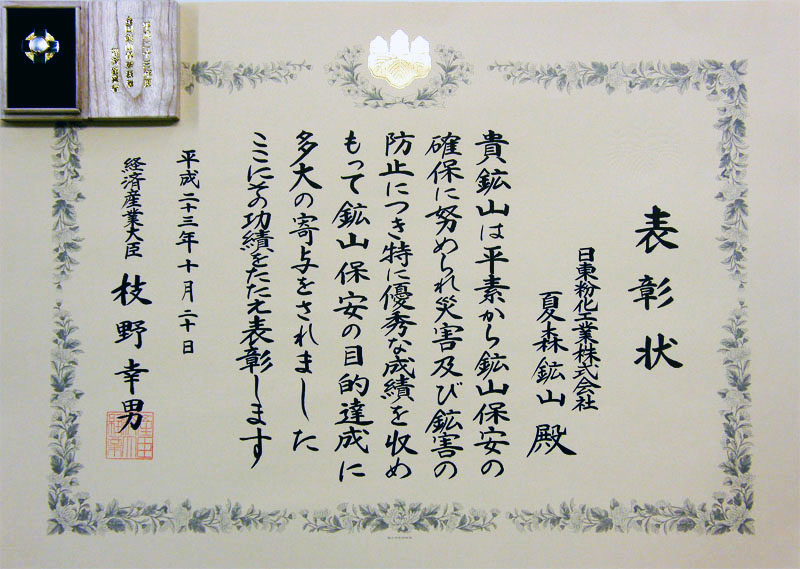 表彰状
日東粉化工業株式会社
夏森鉱山殿
貴鉱山は平素から鉱山保安の
確保に努められ災害及び鉱害の
防止につき特に優秀な成績を収め
もって鉱山保安の目的達成に
多大の寄与をされました
ここにその功績をたたえ表彰します
平成二十三年十月二十日
経済産業大臣
枝野幸男